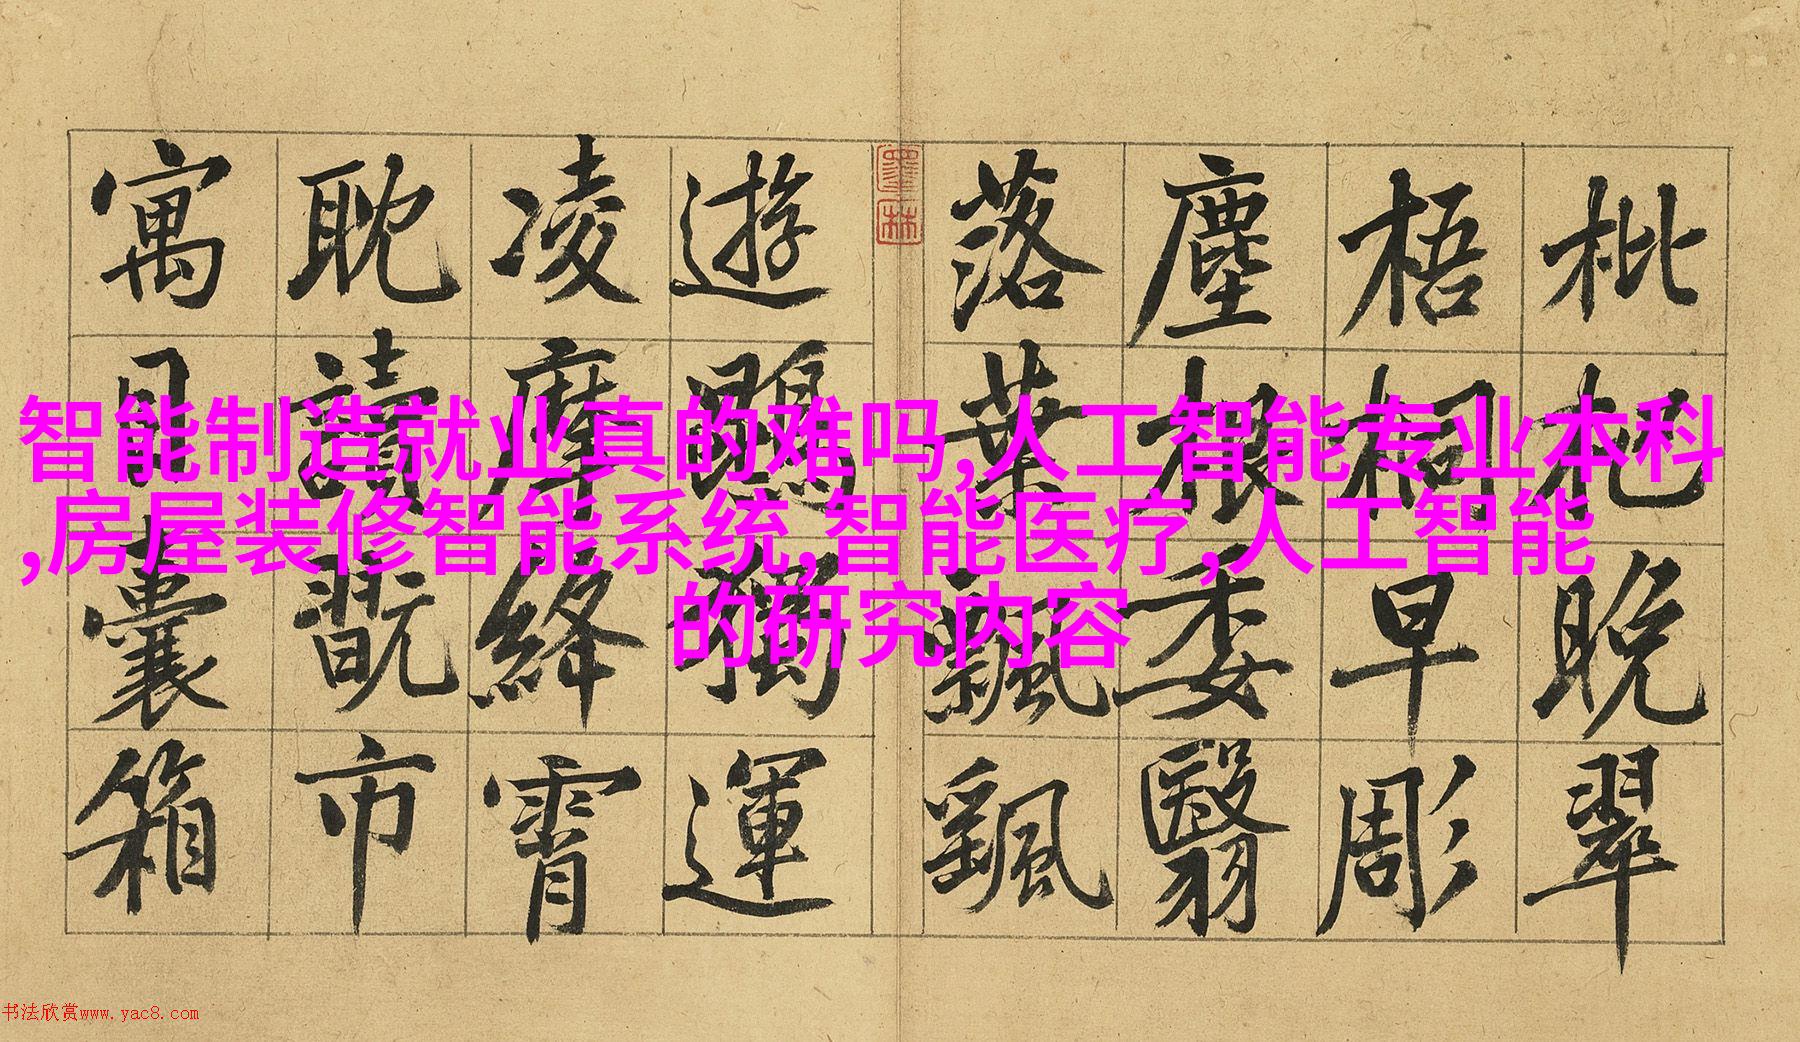 枇杷晚翠
梧桐早彫
塵根委翳
落葉飄颻
遊鵾獨運
凌摩絳霄
耽讀翫市
寓目囊箱
墨林
智能制造就业真的难吗,人工智能专业本科
,房屋装修智能系统,智能医疗,人工智能
的研究内容
书法欣赏www.yac8.com